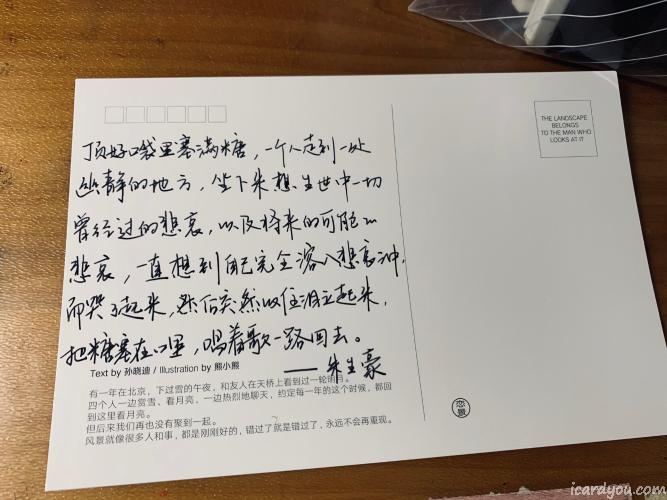 顶好口袋里塞满糖，一个人走到一处
幽静的地方，坐下来想生世中一切
曾经过的悲哀，以及将来的可能的
悲哀，一直想到自己完全溶入悲哀中，
而哭了起来，然后突然收住泪立起来，
把糖塞在口里，唱着歌一路回去。
——朱生豪
THE LANDSCAPE
BELONGS
TO THE MAN WHO
LOOKS AT IT
Text by 孙晓迪 / Illustration by 熊小熊
有一年在北京，下过雪的午夜，和友人在天桥上看到过一轮明月。
四个人一边赏雪、看月亮，一边热烈地聊天，约定每一年的这个时候，都回
到这里看月亮。
但后来我们再也没有聚到一起。
风景就像很多人和事，都是刚刚好的，错过了就是错过了，永远不会再重现。
恋
景
icardyou.com